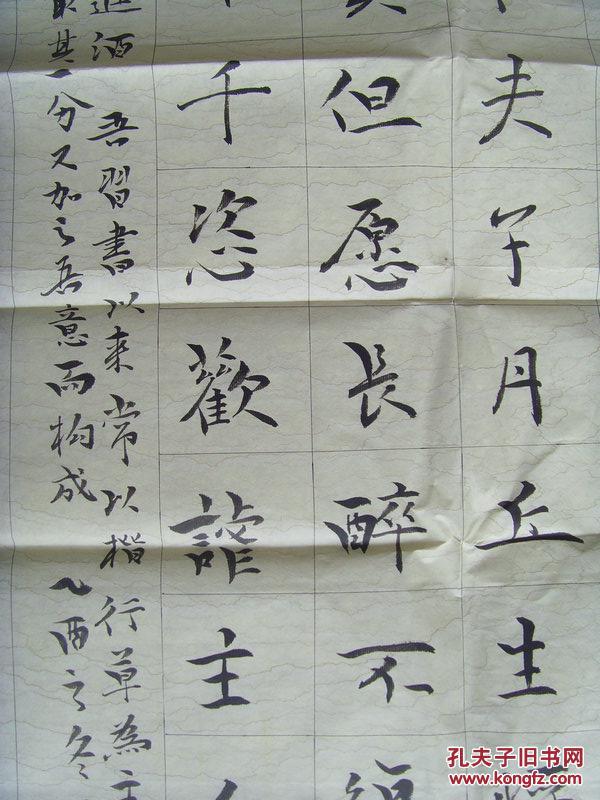 夫子丹丘生
但愿長醉不
千恣歡謔主
進酒 吾習書以来常以楷行草為主
其一分又加之吾意而构成 乙酉之冬
孔夫子旧书网
www.kongfz.com